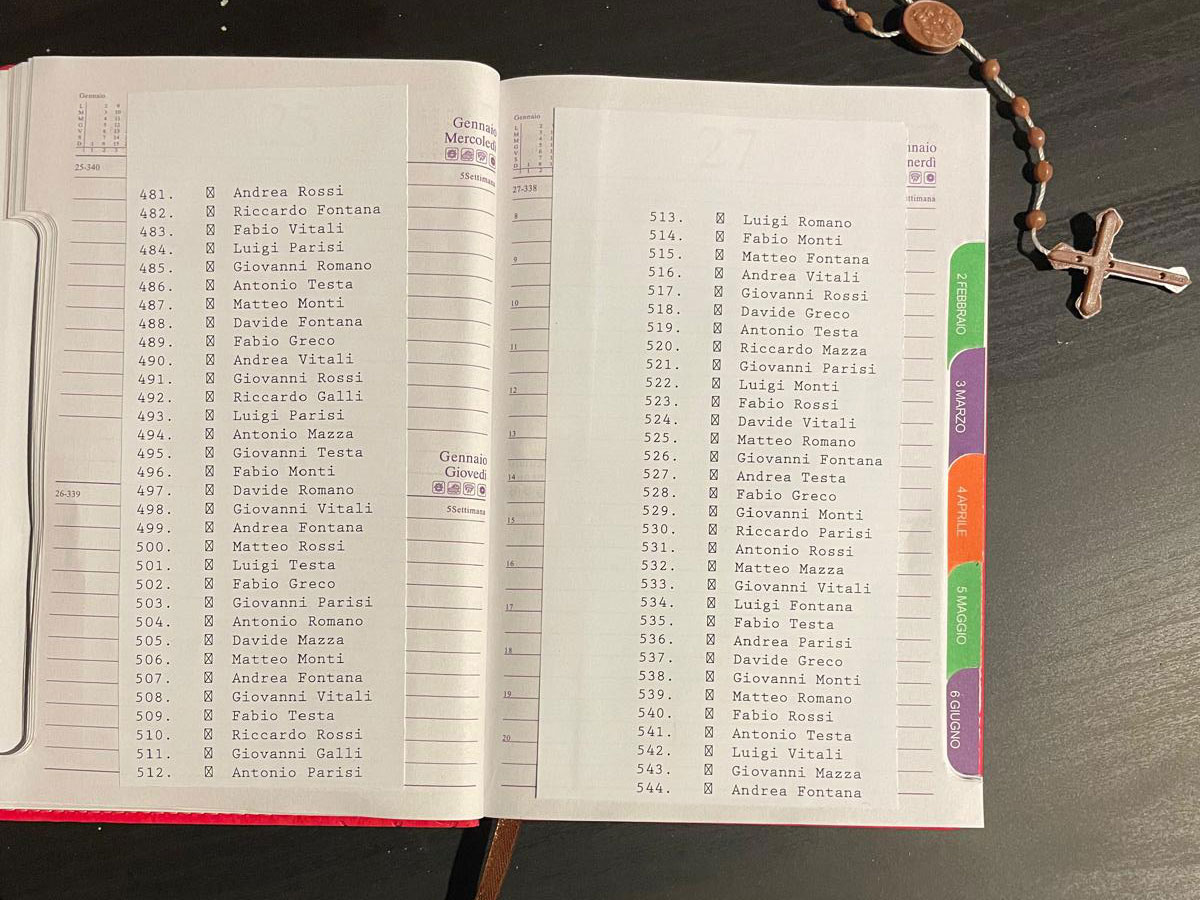 Gennaio
25-340
Gennaio
Mercoledì
5Settimana
481. ☒ Andrea Rossi
482. ☒ Riccardo Fontana
483. ☒ Fabio Vitali
484. ☒ Luigi Parisi
485. ☒ Giovanni Romano
486. ☒ Antonio Testa
487. ☒ Matteo Monti
488. ☒ Davide Fontana
489. ☒ Fabio Greco
490. ☒ Andrea Vitali
491. ☒ Giovanni Rossi
492. ☒ Riccardo Galli
493. ☒ Luigi Parisi
494. ☒ Antonio Mazza
495. ☒ Giovanni Testa
496. ☒ Fabio Monti
497. ☒ Davide Romano
498. ☒ Giovanni Vitali
499. ☒ Andrea Fontana
500. ☒ Matteo Rossi
501. ☒ Luigi Testa
502. ☒ Fabio Greco
503. ☒ Giovanni Parisi
504. ☒ Antonio Romano
505. ☒ Davide Mazza
506. ☒ Matteo Monti
507. ☒ Andrea Fontana
508. ☒ Giovanni Vitali
509. ☒ Fabio Testa
510. ☒ Riccardo Rossi
511. ☒ Giovanni Galli
512. ☒ Antonio Parisi
26-339
Gennaio
Giovedì
5Settimana
Gennaio
27-338
8
9
10
11
12
13
14
15
16
17
18
19
20
nnaio
nerdì
ttimana
513. ☒ Luigi Romano
514. ☒ Fabio Monti
515. ☒ Matteo Fontana
516. ☒ Andrea Vitali
517. ☒ Giovanni Rossi
518. ☒ Davide Greco
519. ☒ Antonio Testa
520. ☒ Riccardo Mazza
521. ☒ Giovanni Parisi
522. ☒ Luigi Monti
523. ☒ Fabio Rossi
524. ☒ Davide Vitali
525. ☒ Matteo Romano
526. ☒ Giovanni Fontana
527. ☒ Andrea Testa
528. ☒ Fabio Greco
529. ☒ Giovanni Monti
530. ☒ Riccardo Parisi
531. ☒ Antonio Rossi
532. ☒ Matteo Mazza
533. ☒ Giovanni Vitali
534. ☒ Luigi Fontana
535. ☒ Fabio Testa
536. ☒ Andrea Parisi
537. ☒ Davide Greco
538. ☒ Giovanni Monti
539. ☒ Matteo Romano
540. ☒ Fabio Rossi
541. ☒ Antonio Testa
542. ☒ Luigi Vitali
543. ☒ Giovanni Mazza
544. ☒ Andrea Fontana
2 FEBBRAIO
3 MARZO
4 APRILE
5 MAGGIO
6 GIUGNO